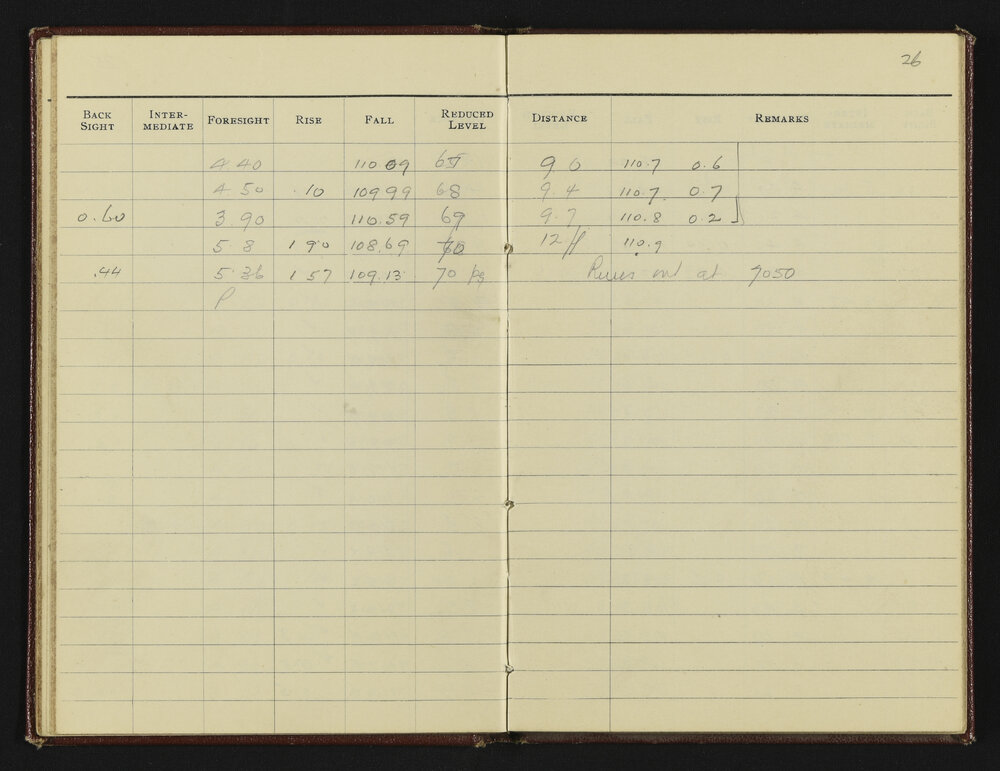 26
BACK SIGHT INTER-MEDIATE FORESIGHT RISE FALL REDUCED LEVEL DISTANCE REMARKS
4 40 110.09 9 0 110.7 0.6
4. 50 .10 109 99 68 9. 4 110.7 0.7
0.60 3 90 110.59 69 9.7 110.8 0.2
5. 8 1 90 108.69 12 110.9
.44 5.36 1 57 109.13 70 pg out at 7050
P